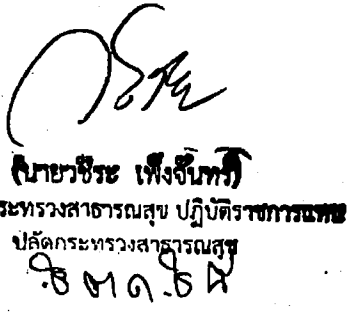 (นายวชิระ เพ็งจันทร์)
ระทรวงสาธารณสุข ปฏิบัติราชการแทน
ปลัดกระทรวงสาธารณสุข